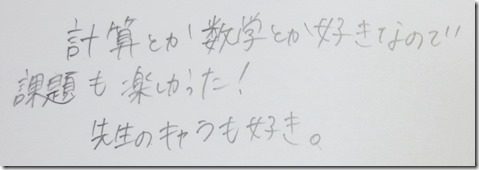 計算とか数学とか好きなので
課題も楽しかった！
先生のキャラも好き。